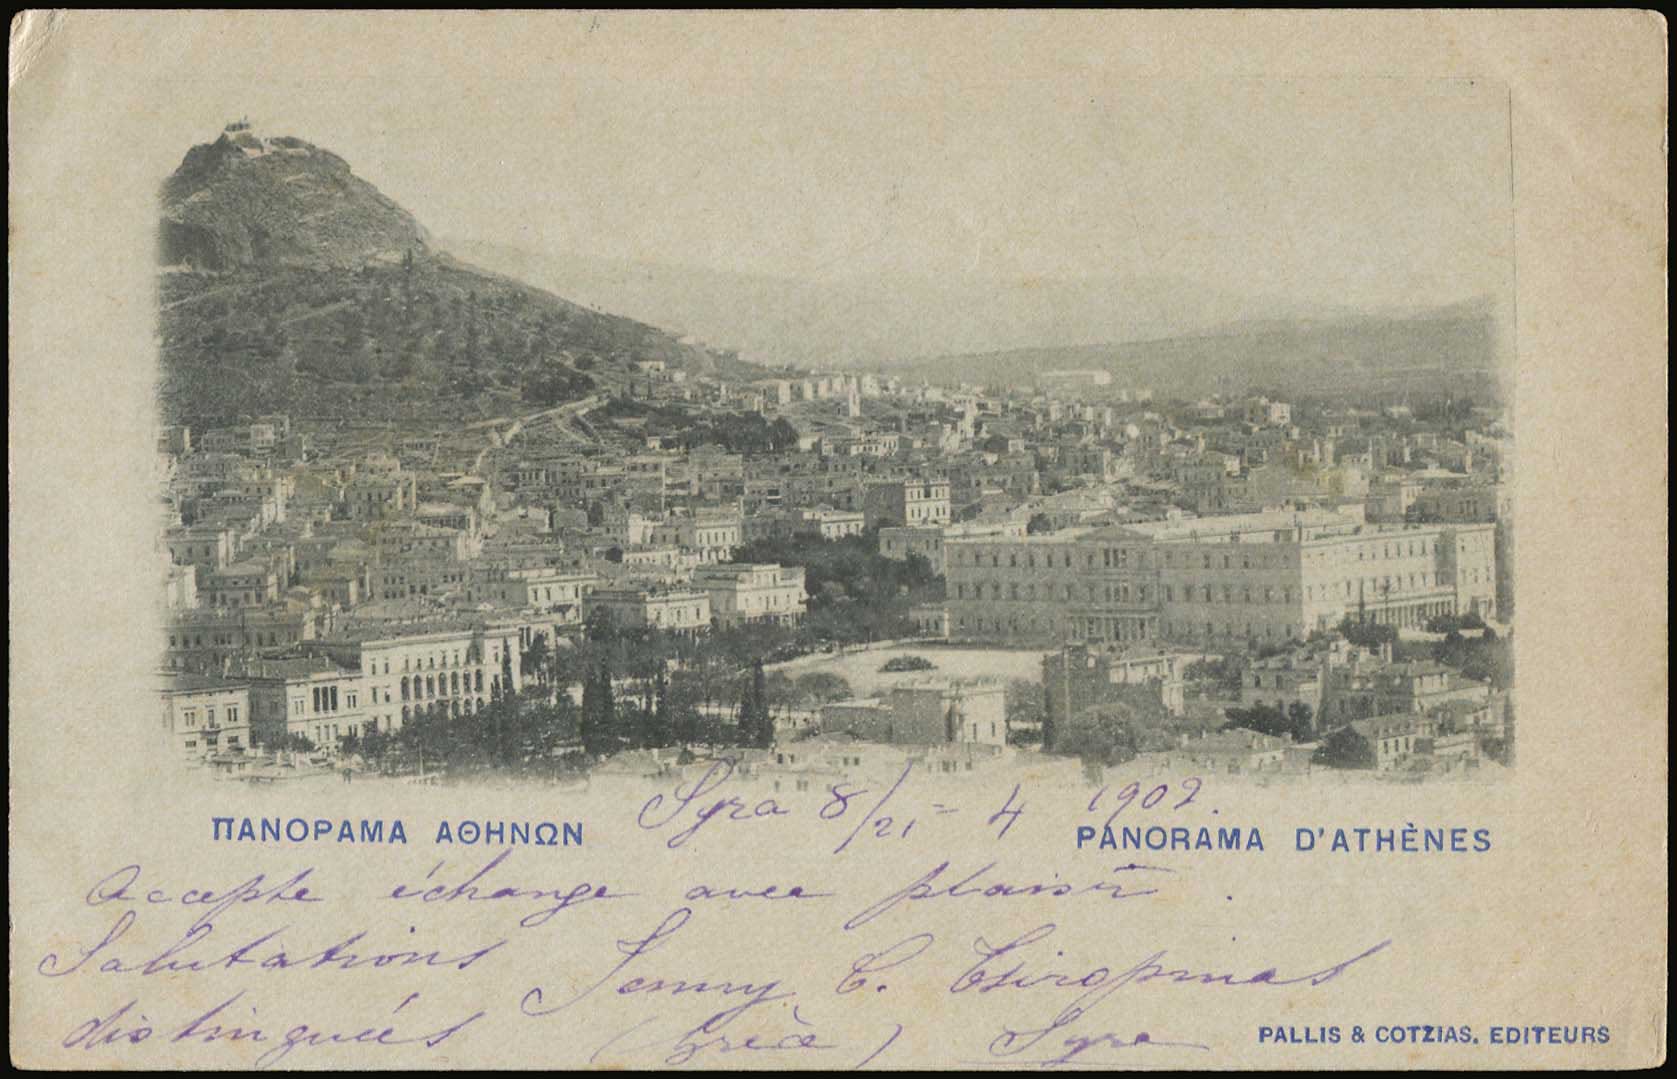 ΠΑΝΟΡΑΜΑ ΑΘΗΝΩΝ
Syra 8/21 = 4 1902.
PANORAMA D'ATHÈNES
Accepte échange avec plaisir.
Salutations Jenny C. Tsiropinas
distinguées (Grèce) Syra
PALLIS & COTZIAS. EDITEURS